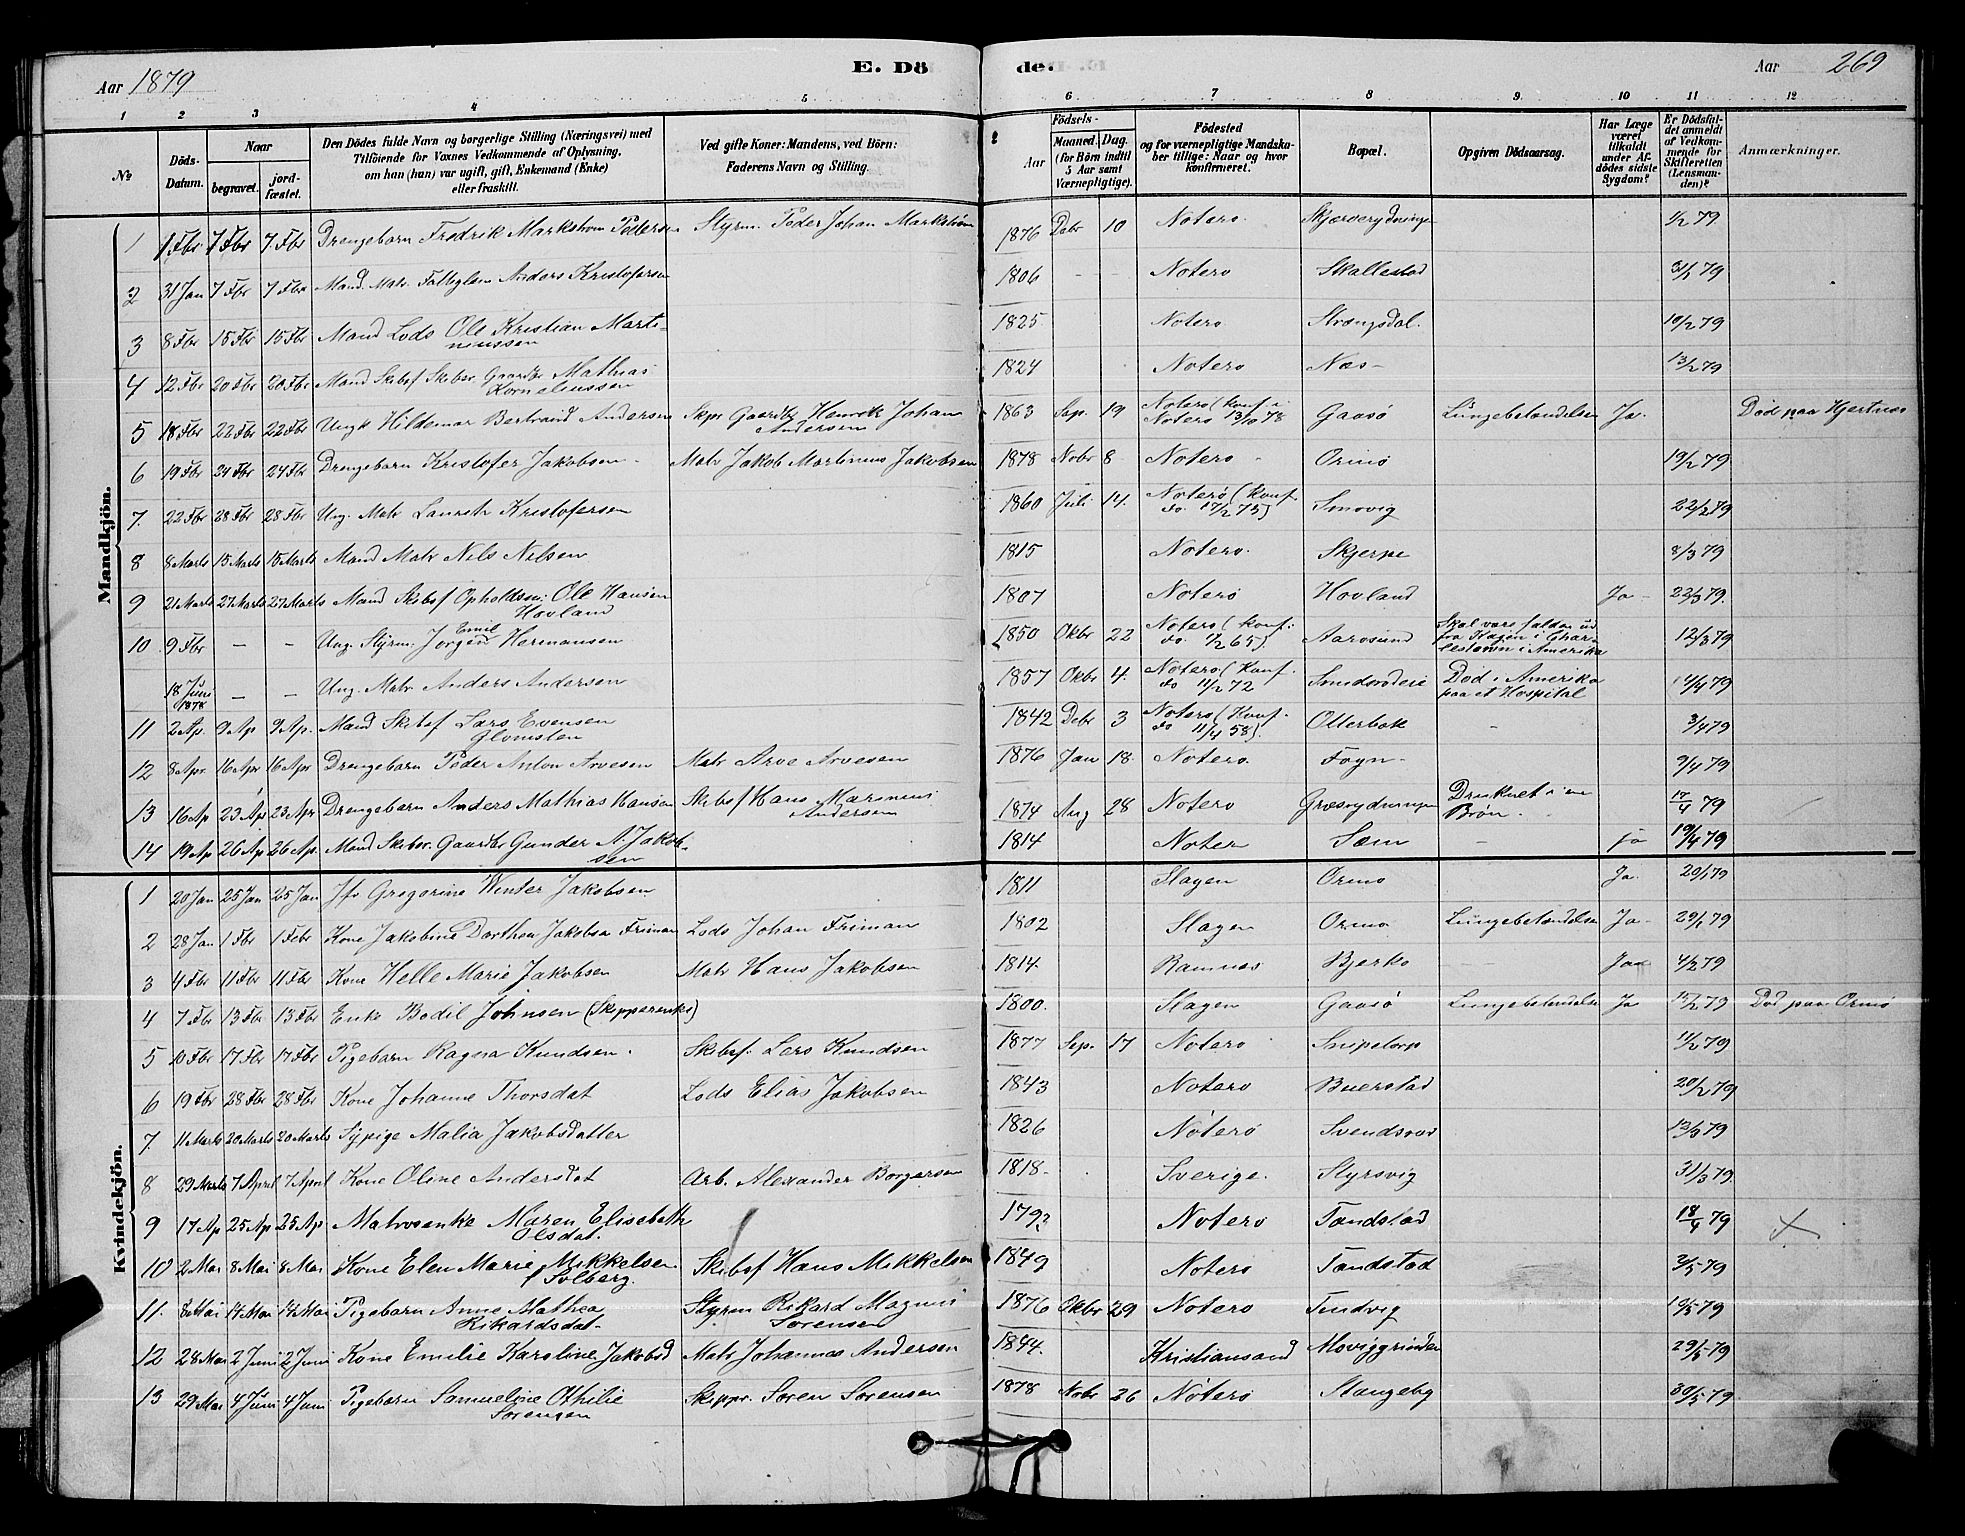 Aar 1879
E. Dö
de.
Aar
269
1 2 3 4 5 6 7 8 9. 10 11 12
№
Döds-Datum.
Naar
begravet. jord-fæstet.
Den Dödes fulde Navn og borgerlige Stilling (Næringsvei) med
Tilföiende for Voxnes Vedkommende af Oplysning,
om han (hun) var ugift, gift, Enkemand (Enke)
eller fraskilt.
Ved gifte Koner: Mandens, ved Börn:
Faderens Navn og Stilling.
Aar
Födsels-
Maaned. Dag.
(for Börn indtil
5 Aar samt
Værnepligtige).
Födested
og for værnepligtige Mandska-
ber tillige: Naar og hvor
konfirmeret.
Bopæl.
Opgiven Dödsaarsag.
Har Læge
været
tilkaldt
under Af-
dödes sidste
Sygdom?
Er Dödsfal-
det anmeldt
af Vedkom-
mende for
Skifteretten
(Lensman-
den)?
Anmærkninger.
Mandkjön.
1 1 Fbr 7 Fbr 7 Fbr Drengebarn Fredrik Markstrøm Pedersen Styrm. Peder Johan Markstrøm 1876 Debr 10 Nøterø Skjærverydningen 1/2 79
2 31 Jan 7 Fbr 7 Fbr Mand. Matr. Anders Kristofersen 1806 - - Nøterø Skallestad 31/1 79
3 8 Fbr 15 Fbr 15 Fbr Mand Lods Ole Kristian Marti-
niussen 1825 Nøterø Strængsdal. 10/2 79
4 12 Fbr 20 Fbr 20 Fbr Mand Skibsf Skibsr. Gaardbr Mathias
Korneliussen 1824 Nøterø Næs - 13/2 79
5 18 Fbr 22 Fbr 22 Fbr Ungk Hildemar Bertrand Andersen Skpr Gaardbr Henrik Johan
Andersen 1863 Sep. 19 Nøterø (konf i
Nøterø 13/10 78 Gaasø Lungebetændelse Ja. Død paa Hjertnes
6 19 Fbr 24 Fbr 24 Fbr Drengebarn Kristofer Jakobsen Matr Jakob Martinius Jakobsen 1878 Nobr 8 Nøterø Ormø 19/2 79
7. 22 Fbr 28 Fbr 28 Fbr Ung. Matr Laurits Kristofersen 1860 Juli 14. Nøterø (konf.
do. 17/2 75) Smøvig 22/2 79
8 8 Marts 15 Marts 15 Marts Mand Matr Nils Nilsen 1815 Nøterø. Skjerpe 8/3 79
9 21 Marts 27 Marts 27 Marts Mand Skibsf Opholdsm: Ole Hansen
Hovland 1807 Nøterø Hovland Ja - 22/3 79.
10 9 Fbr - - Ung. Styrm. Jørgen Emil Hermansen 1850 Okbr 22 Nøterø (konf.
do. 1/2 65) Aarøsund Skal være falden ud
fra Hagen i Char-
lestown i Amerika 12/3 79
18 Juni
1878 - - Ung. Matr Anders Andersen 1857 Okbr 4. Nøterø (konf.
do 11/2 72 Smidsrødeie Død i Amerika
paa et Hospital 1/4 79
11 2 Ap. 9 Ap 9 Ap. Mand Skibsf Lars Evensen
Glomsten 1842 Debr 3 Nøterø (konf.
do 11/4 58). Otterbek - 3/4 79
12 8 Apr. 16 Apr 16 Apr Drengebarn Peder Anton Arvesen Matr Arve Arvesen 1876 Jan 18. Nøterø Føyn - 9/4 79
13 16 Ap 23 Ap 23 Apr Drengebarn Anders Mathias Hansen Skibsf Hans Marinius
Andersen 1874 Aug 28 Nøterø Græsrydningen Druknet i en
Brøn. 17/4 79
14 19 Ap 26 Ap 26 Ap. Mand Skibsr. Gaardbr Gunder A. Jakob-
sen 1814 Nøterø Sæm - ja 19/4 79
Kvindekjön.
1 20 Jan 25 Jan 25 Jan Jfr Gregorine Winter Jakobsen 1811 Slagen Ormø Ja. 20/1 79
2 28 Jan 1 Fbr 1 Febr Kone Jakobine Dorthea Jakobsen Friman Lods Johan Friman 1802 Slagen Ormø Lungebetændelse Ja - 29/1 79
3 4 Fbr 11 Fbr 11 Fbr Kone Helle Marie Jakobsen Matr Hans Jakobsen 1814 Ramnes Bjerkø - Ja 4/2 79
4 7 Fbr 13 Fbr 13 Fbr Enke Bodil Johnsen (Skipperenke) 1800. Slagen Gaasø Lungebetændelse Ja 15/2 79 Død paa Ormø
5 10 Fbr 17 Fbr 17 Fbr Pigebarn Ragna Knudsen. Skibsf. Lars Knudsen 1877 Sep. 17 Nøterø Snipetorp 11/2 79
6 19 Fbr 28 Fbr 28 Fbr Kone Johanne Thorsdat Lods Elias Jakobsen 1843 Nøterø Buerstad 20/2 79
7. 11 Marts 20 Marts 20 Marts Sypige Malia Jakobsdatter 1826 Nøterø Svendsrød 12/3 79
8 29 Marts 7 April 7 April Kone Oline Andersdat Arb. Alexander Borgersen 1818 - Sverige. Styrsvig 31/3 79
9 17 Ap 25 Ap 25 Ap Matrosenke Maren Elisabeth
Olsdat. 1792 Nøterø Tandstad 18/4 79 ×
10 2 Mai 8 Mai 8 Mai Kone Elen Marie Mikkelsen
f Solberg. Skibsf Hans Mikkelsen 1849 Nøterø Tandstad 3/5 79
11. 8 Mai 14 Mai 14 Mai Pigebarn Anne Mathea
Rikardsdat. Styrm Rikard Magnus
Sørensen 1876 Okbr 29 Nøterø Tindvig 10/5 79
12 28 Mai 2 Juni 2 Juni Kone Emilie Karoline Jakobsd Matr Johannes Andersen 1844. Kristiansand Moviggrinden 29/5 79
13 29 Mai 4 Juni 4 Juni Pigebarn Sameline Othilie
Sørensen Skippr. Søren Sørensen 1878 Nobr 26 Nøterø Stangeby 30/5 79